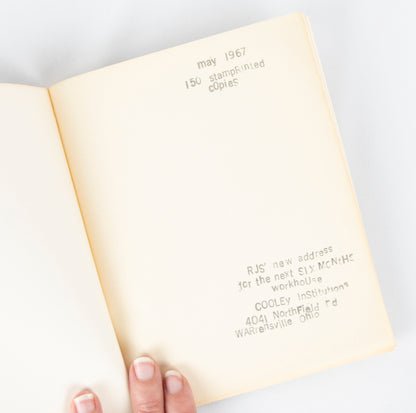 may 1967
150 stampRinted
cOpieS
RJS' new address
for the next SIX MoNtHS
workhoUse
COOLEy InStitutionS
4041 NorthField Rd
WARrensville OhIo